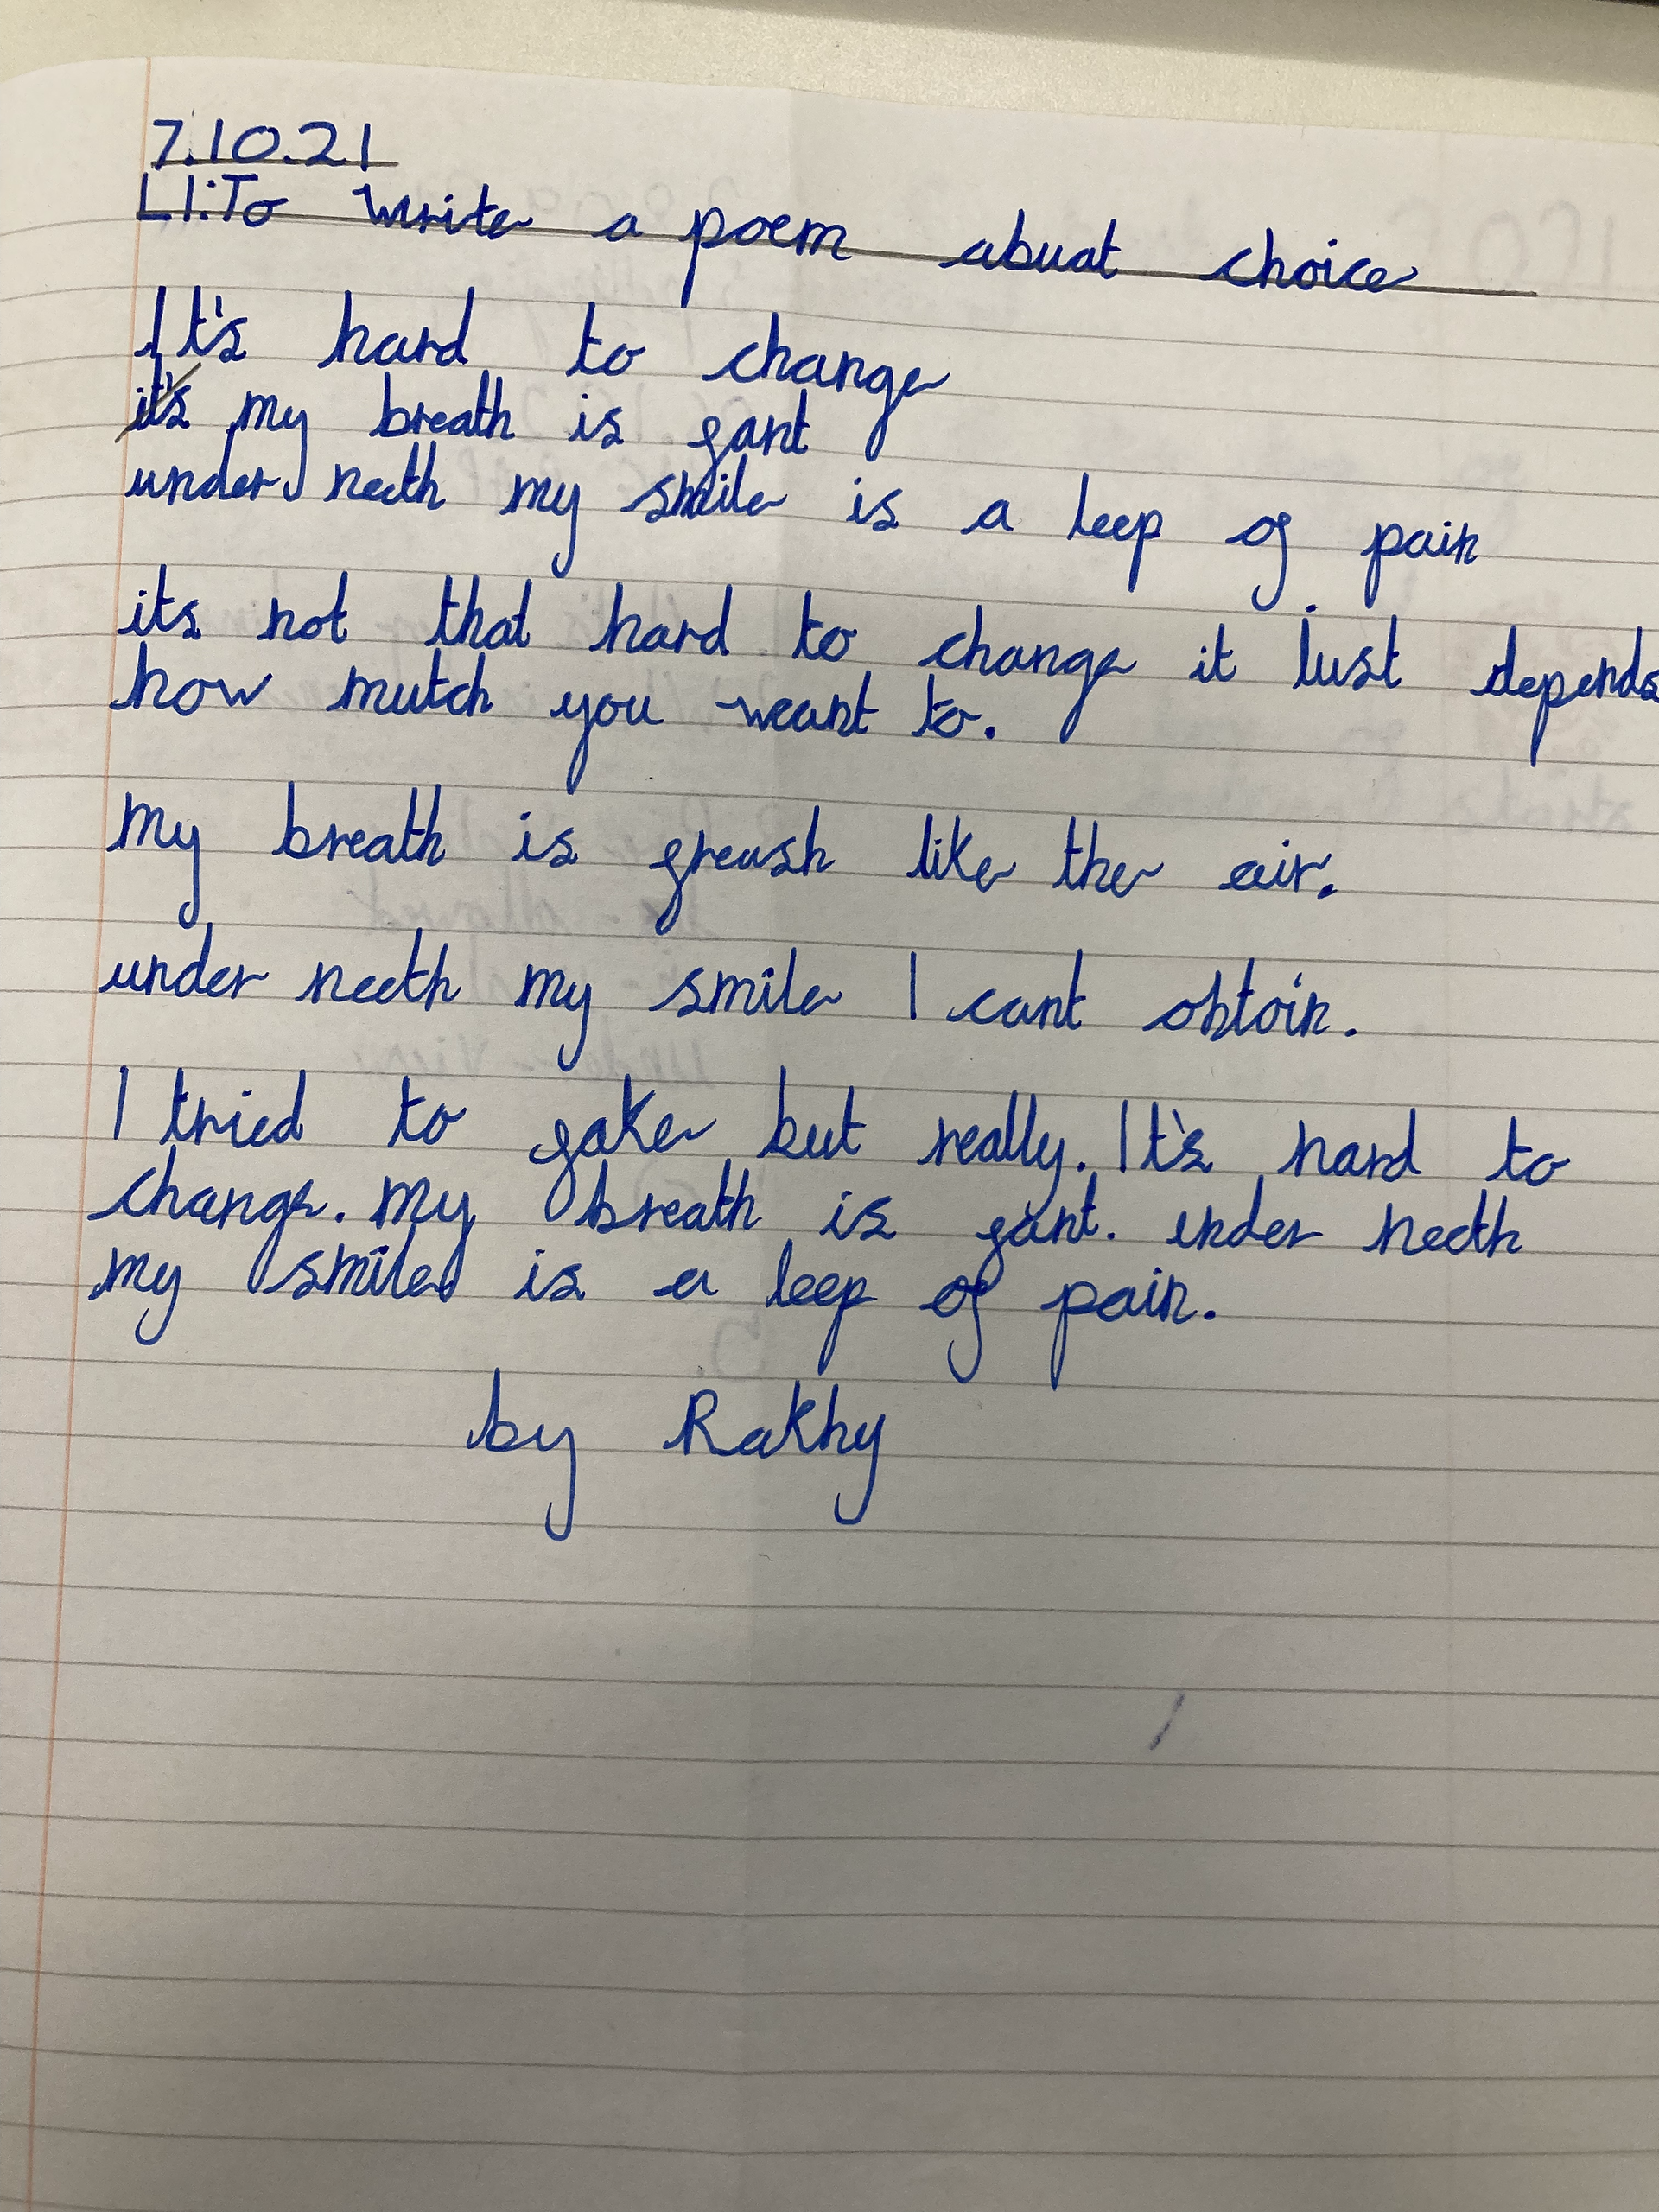 7.10.21
L1:To write a poem abuat choice
It's hard to change
it's my breath is fant
under neeth my smile is a leep of pain
its not that hard to change it just depends
how mutch you weant to.
my breath is freash like the air.
under neeth my smile I cant obtain.
I tried to fake but really. It's hard to
change. my breath is fant. under neeth
my smile is a leep of pain.
by Rakhy